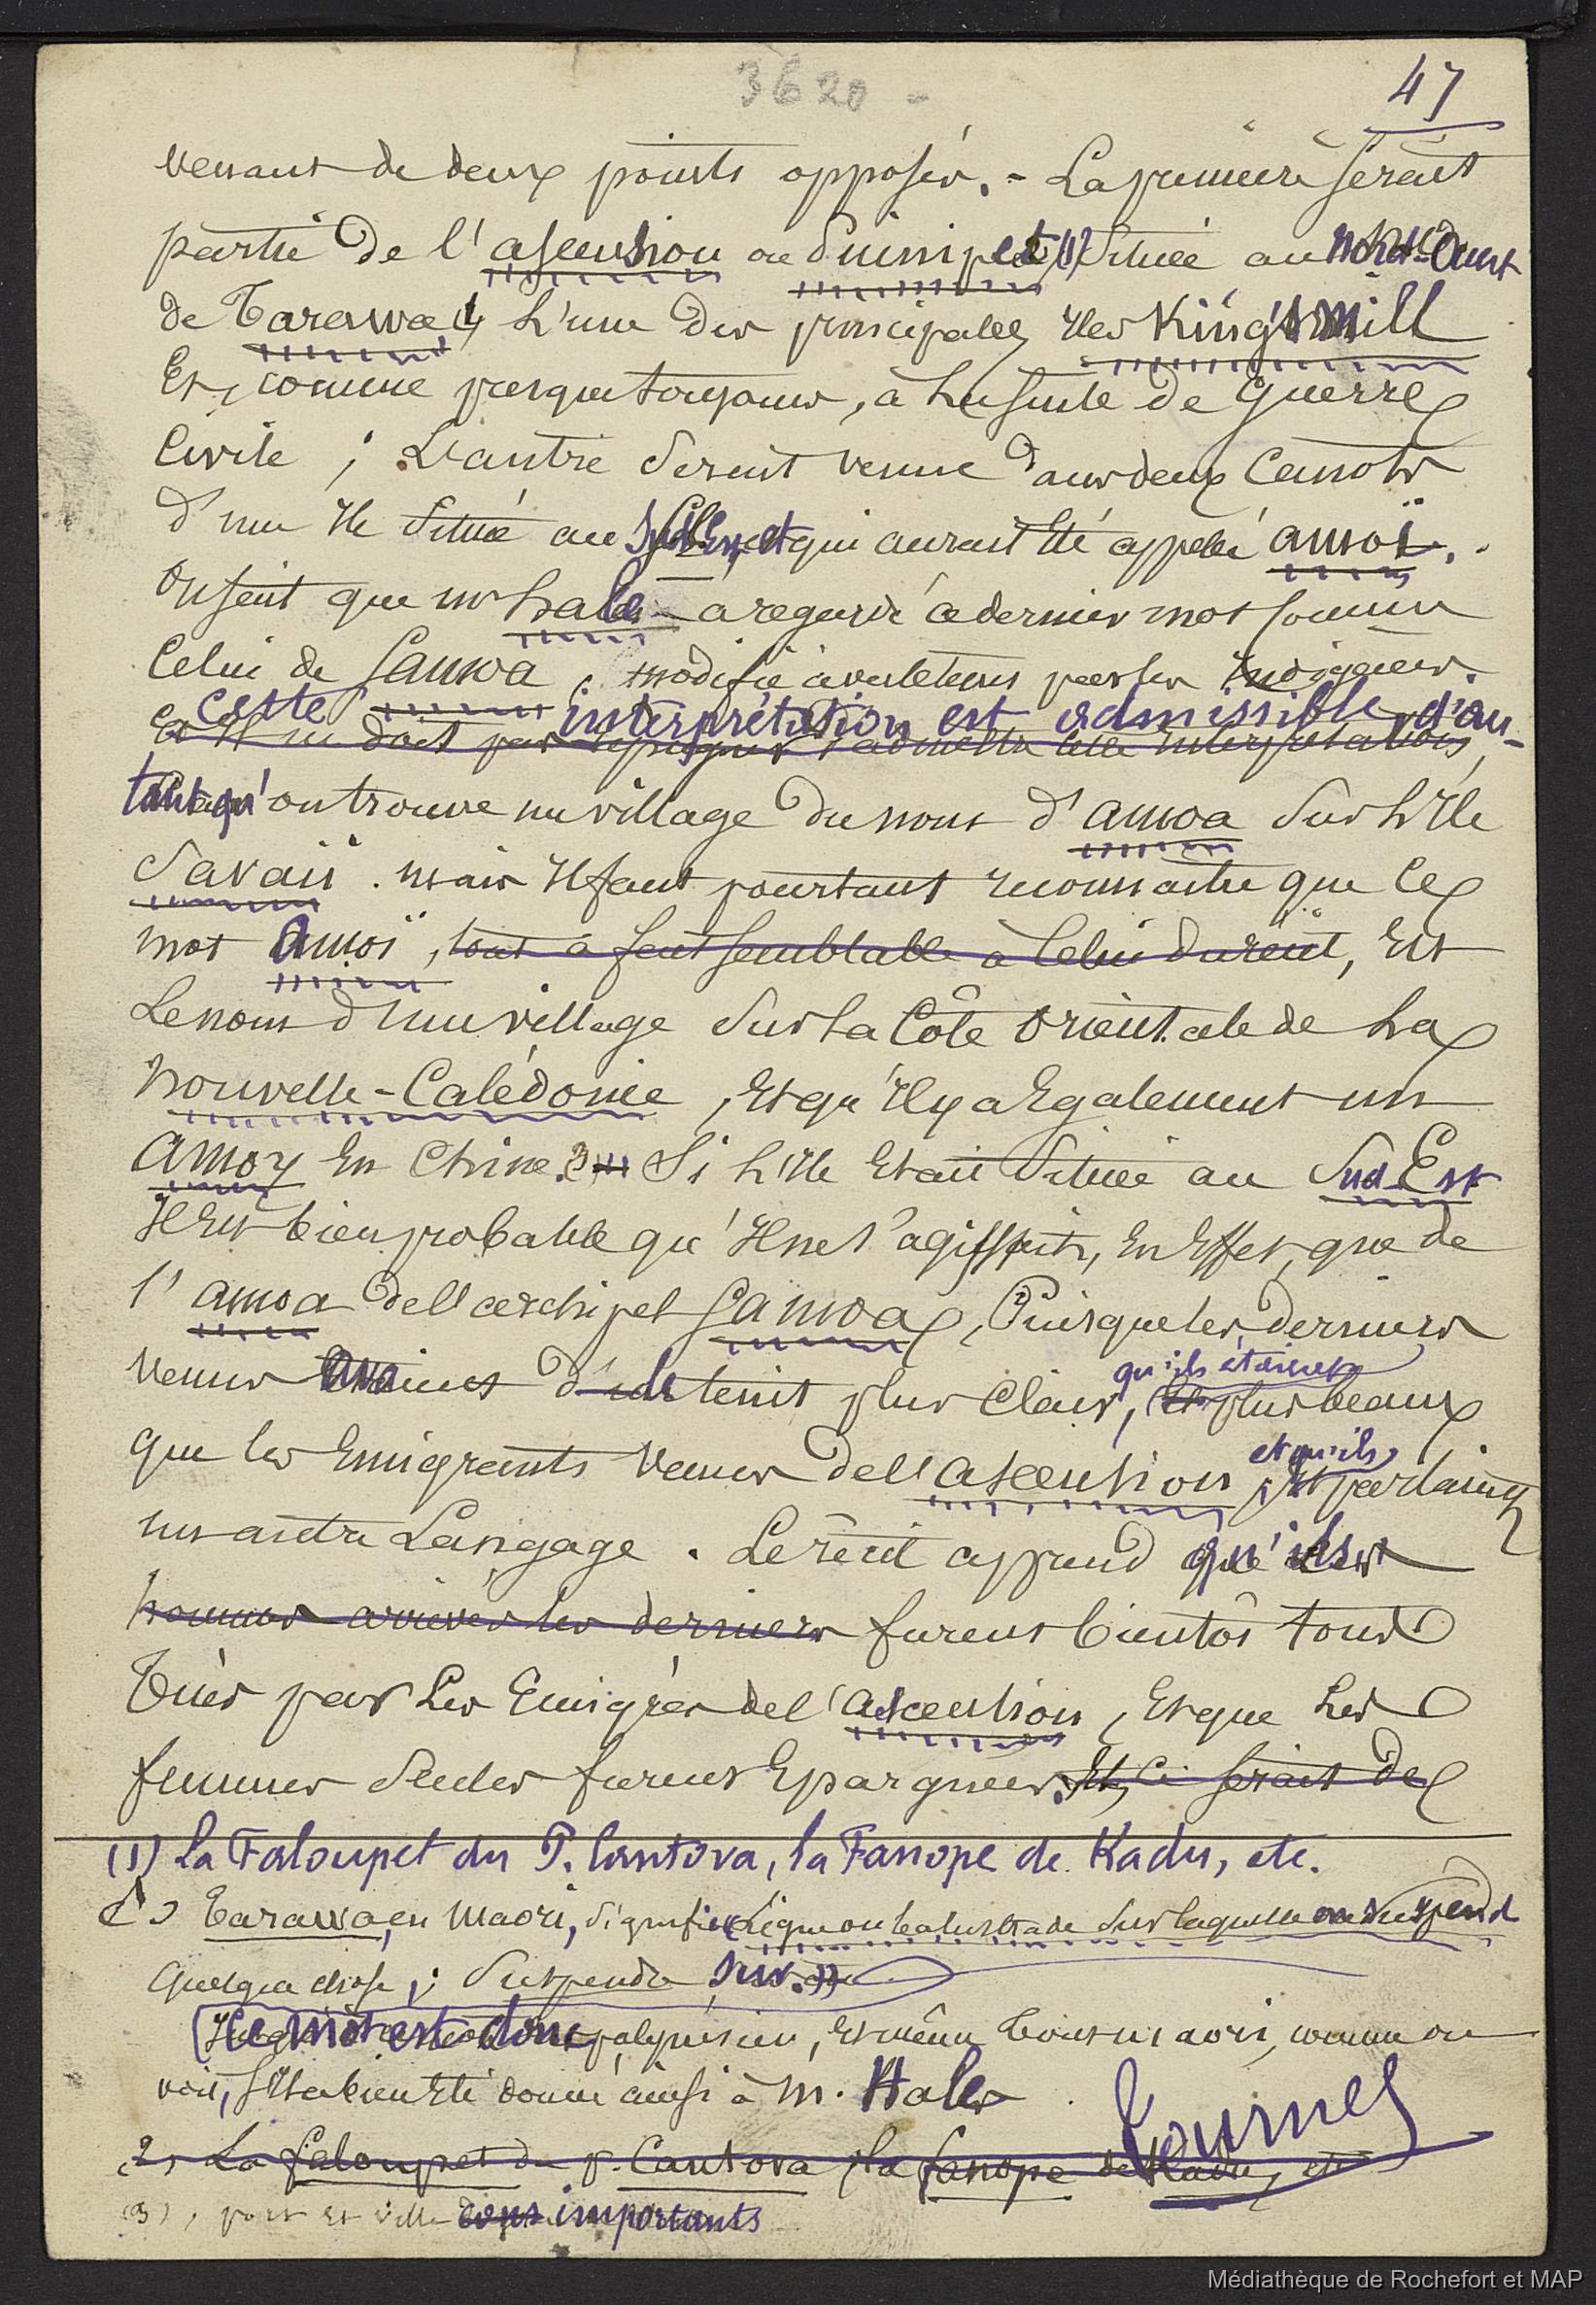 3620 -
47
venant de deux points opposés. - La première serait
partie de l'ascension ou Puinipet (1) située au Nord-Ouest
de Tarawa, l'une des principales Iles King'smill
Et, comme presque toujours, à la suite de guerre
Civile ; L'autre serait venue dans deux canots
d'une Ile située au Sud-Est, et qui aurait été appelée amoï. -
On sait que mr hale a regardé ce dernier mot comme
Celui de Samoa, modifié avec le tems par les indigènes.
Cette interprétation est admissible, d'au-
Et il ne doit pas répugner d'admettre cette interprétation,
tant qu'on trouve un village du nom d'amoa sur l'Ile
Savaii. mais Il faut pourtant reconnaitre que ce
mot amoï, tout à fait semblable à celui du récit, Est
Le nom d'un village sur la Côte orientale de la
Nouvelle-Calédonie, Et qu'Il y a Egalement un
Amoy En Chine. Si l'Ile Etait située au Sud-Est
Il Est bien probable qu'Il ne s'agissait, En Effet, que de
l'amoa de l'archipel Samoa, Puisque les derniers
venus avaient le teint plus clair, qu'ils étaient plus beaux
que les Emigrants venus de l'ascension, et qu'ils parlaient
un autre Langage. Le récit apprend qu'ils
hommes arrivés les derniers furent bientôt tous
Tués par Les Emigrés de l'ascension, Et que Les
femmes seules furent Epargnées. Et, Ce serait de
(1) la Faloupet du P. Cantova, la Fanope de Kadu, etc.
Tarawa, en Maori, signifie ligne ou balustrade sur laquelle on suspend
quelque chose ; suspendre sur. »
Ce mot est donc polynésien, Et même tout maori, comme on
voit, s'Il a bien Eté donné ainsi à M. Hale
Tournes
2, La faloupet du p. Cantova, la fanope de Kadu, etc
(3), port et ville importants